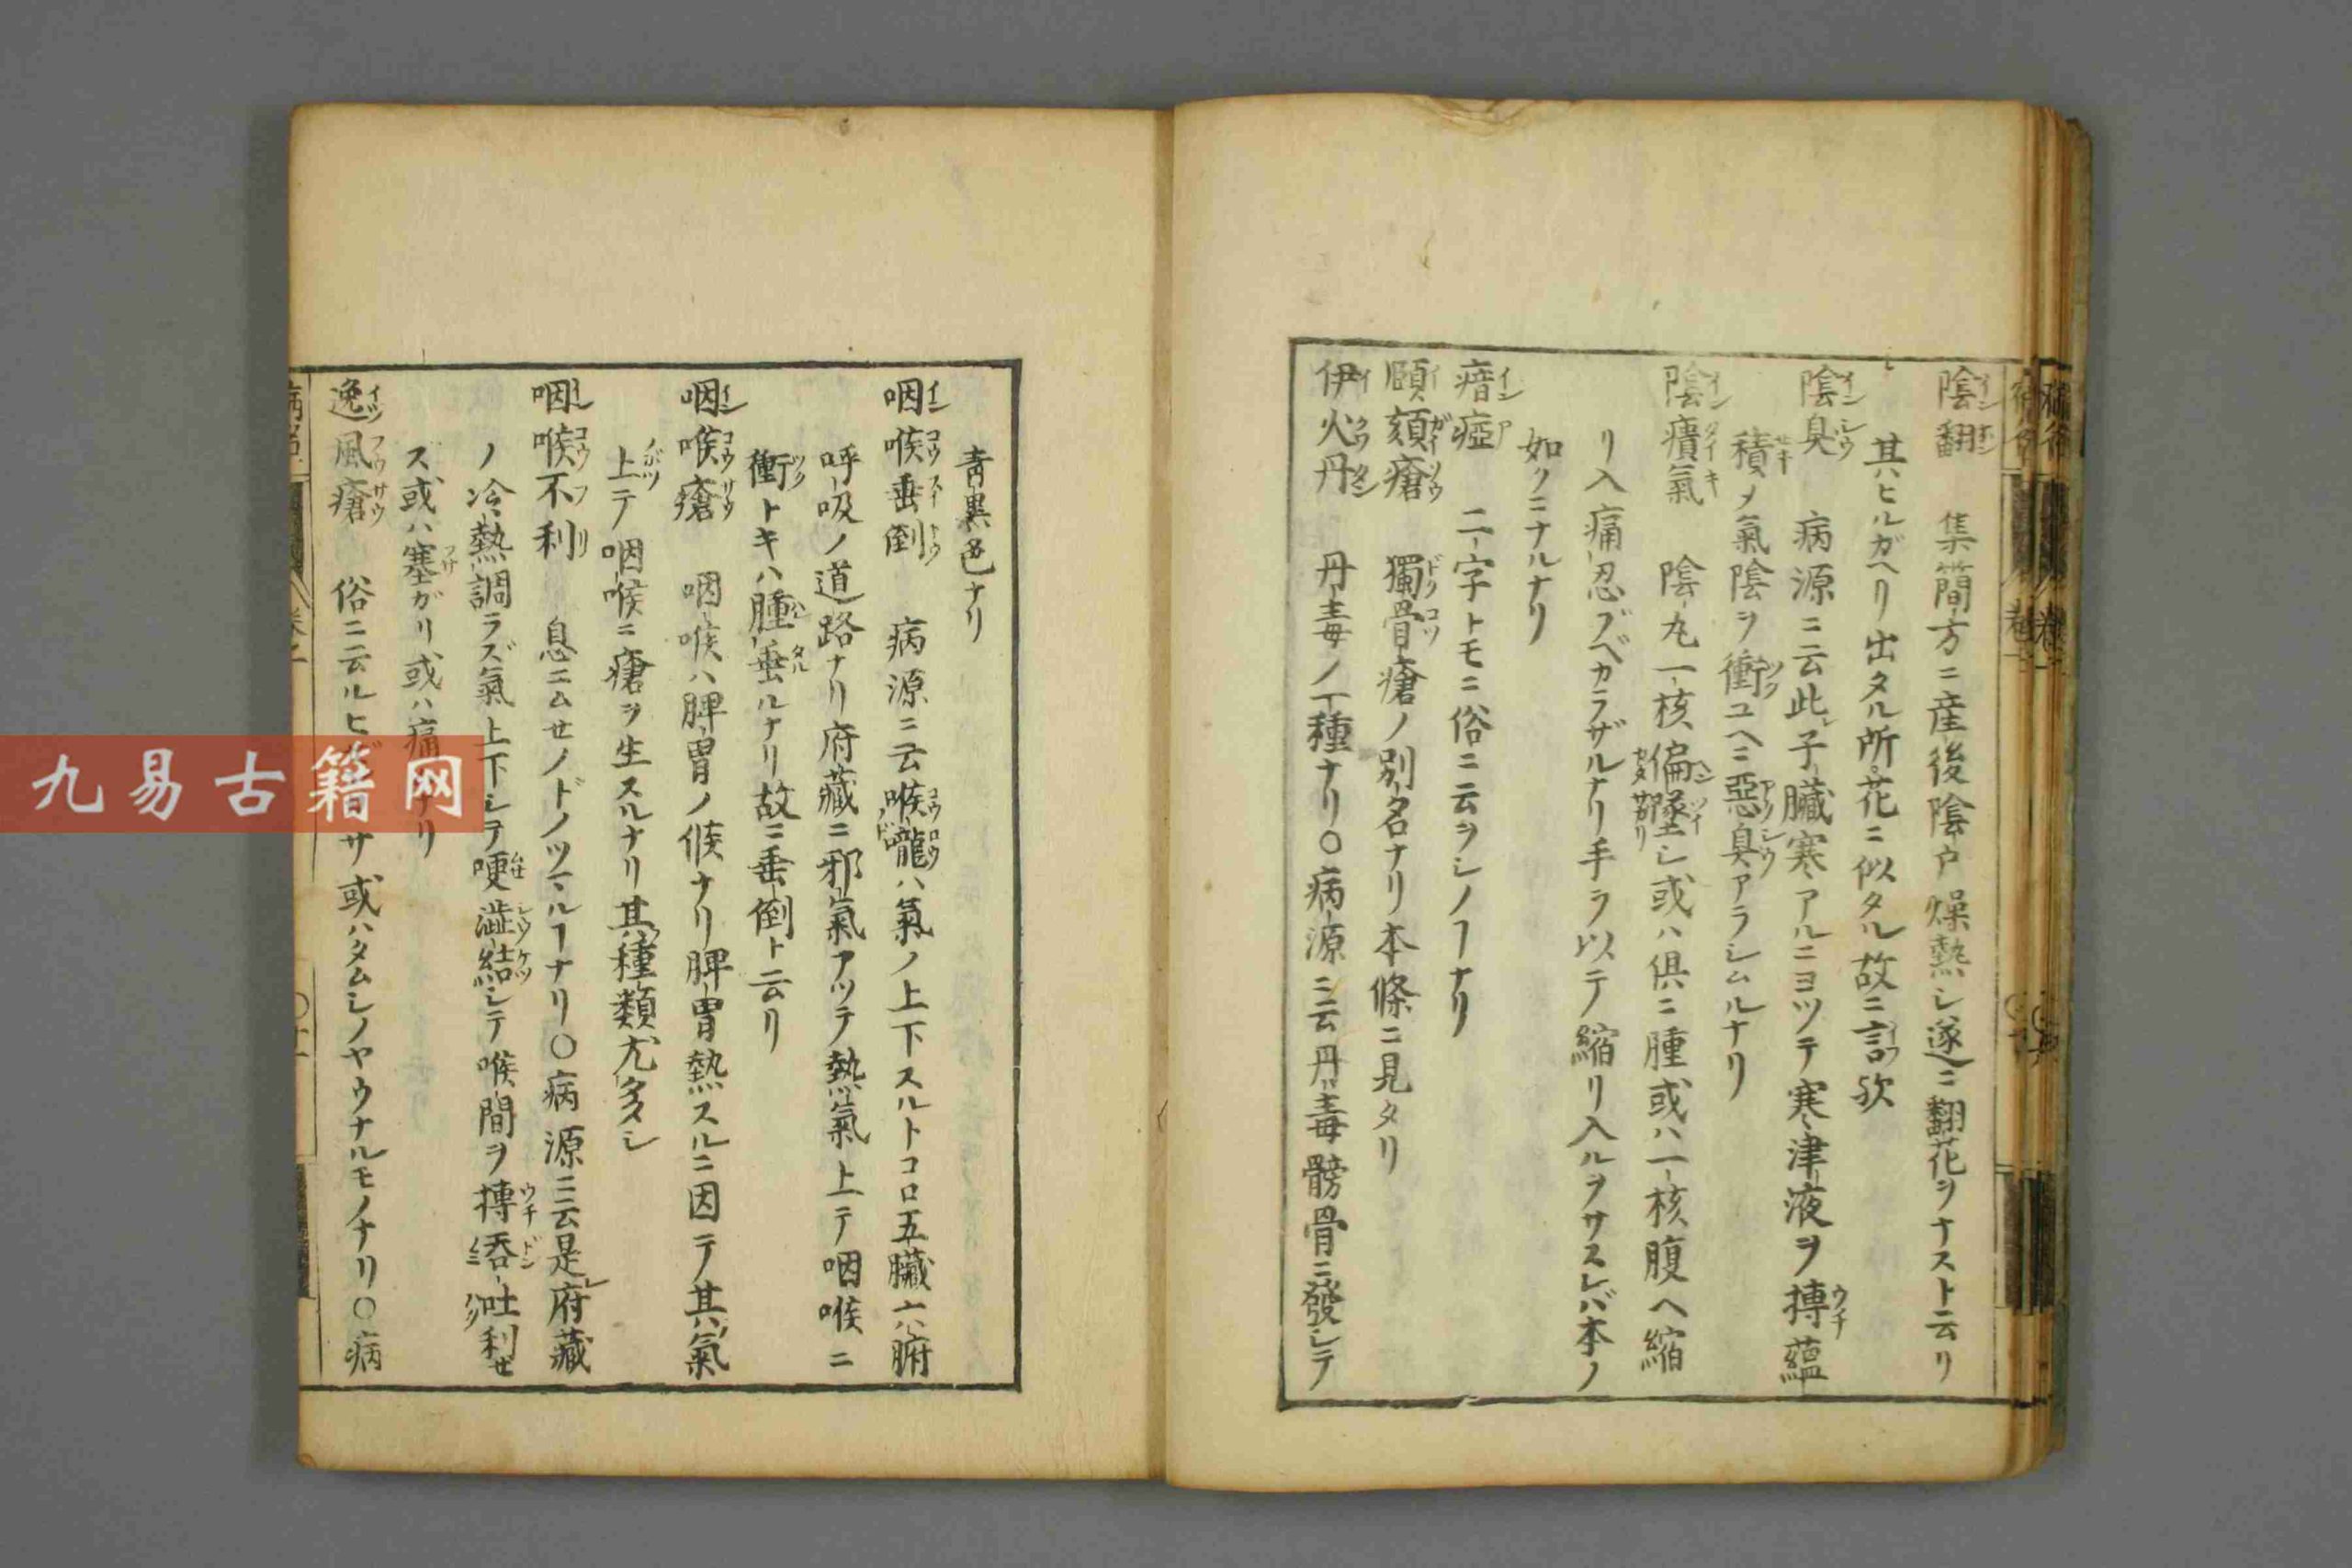 陰翻　集簡方ニ産後陰戸燥熱シ遂ニ翻花ヲナスト云リ
其ヒルガヘリ出タル所花ニ似タル故ニ訁欤
陰臭　病源ニ云此子臓寒アルニヨツテ寒津液ヲ摶蘊
積メ氣陰ヲ衝ユヘニ惡臭アラシムルナリ
陰㿉氣　陰丸一核偏墜シ或ハ俱ニ腫或ハ一核腹ヘ縮
リ入痛忍ブベカラザルナリ手ヲ以テ縮リ入ルヲサスレバ本ノ
如クニナルナリ
瘖瘂　二字トモニ俗ニ云ヲシノヿナリ
頤頦瘡　獨骨瘡ノ別名ナリ本條ニ見タリ
伊火丹　丹毒ノ一種ナリ〇病源ニ云丹毒髈骨ニ發シテ
青黒色ナリ
咽喉垂倒　病源ニ云喉嚨ハ氣ノ上下スルトコロ五臓六腑
呼吸ノ道路ナリ府藏ニ邪氣アツテ熱氣上テ咽喉ニ
衝トキハ腫垂ルナリ故ニ垂倒ト云リ
咽喉瘡　咽喉ハ脾胃ノ候ナリ脾胃熱スルニ因テ其氣
上テ咽喉ニ瘡ヲ生スルナリ其種類尤多シ
咽喉不利　息ニムセノドノツマルヿナリ〇病源ニ云是府藏
ノ冷熱調ラズ氣上下シテ哽澁結シテ喉間ヲ摶呑吐利セ
ズ或ハ塞ガリ或ハ痛ナリ
逸風瘡　俗ニ云ルヒサ或ハタムシノヤウナルモノナリ〇病
九易古籍网